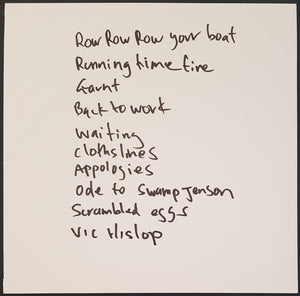 Row Row Row your boat
Running time fire
Gaunt
Back to work
Waiting
Clotheslines
Appologies
Ode to Swamp Jenson
Scrambled eggs
Vic Hislop